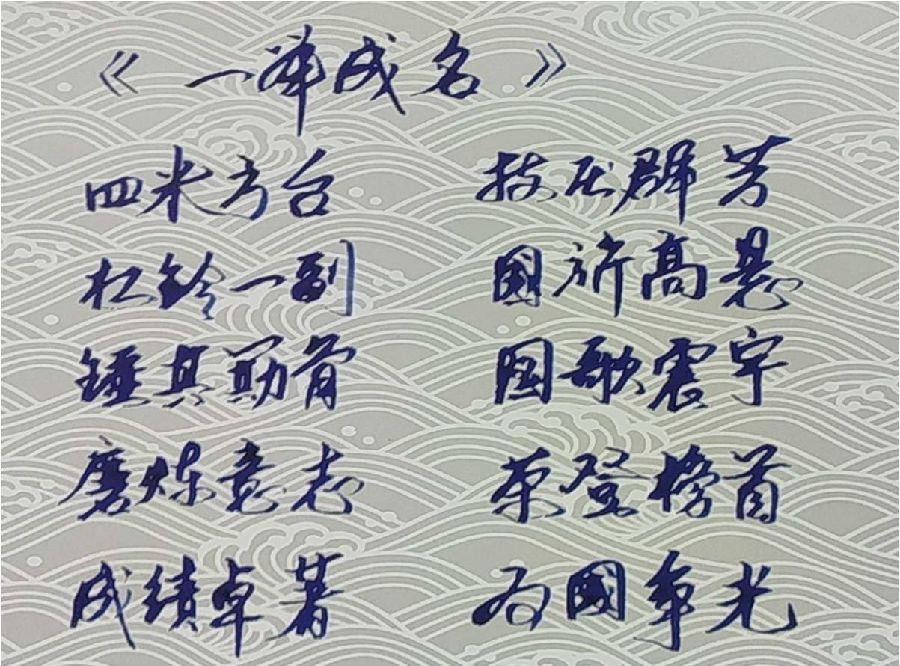 《一举成名》
四米方台
杠铃一副
锤其筋骨
磨炼意志
成绩卓著
技压群芳
國旂高悬
国歌震宇
荣登榜首
为國争光